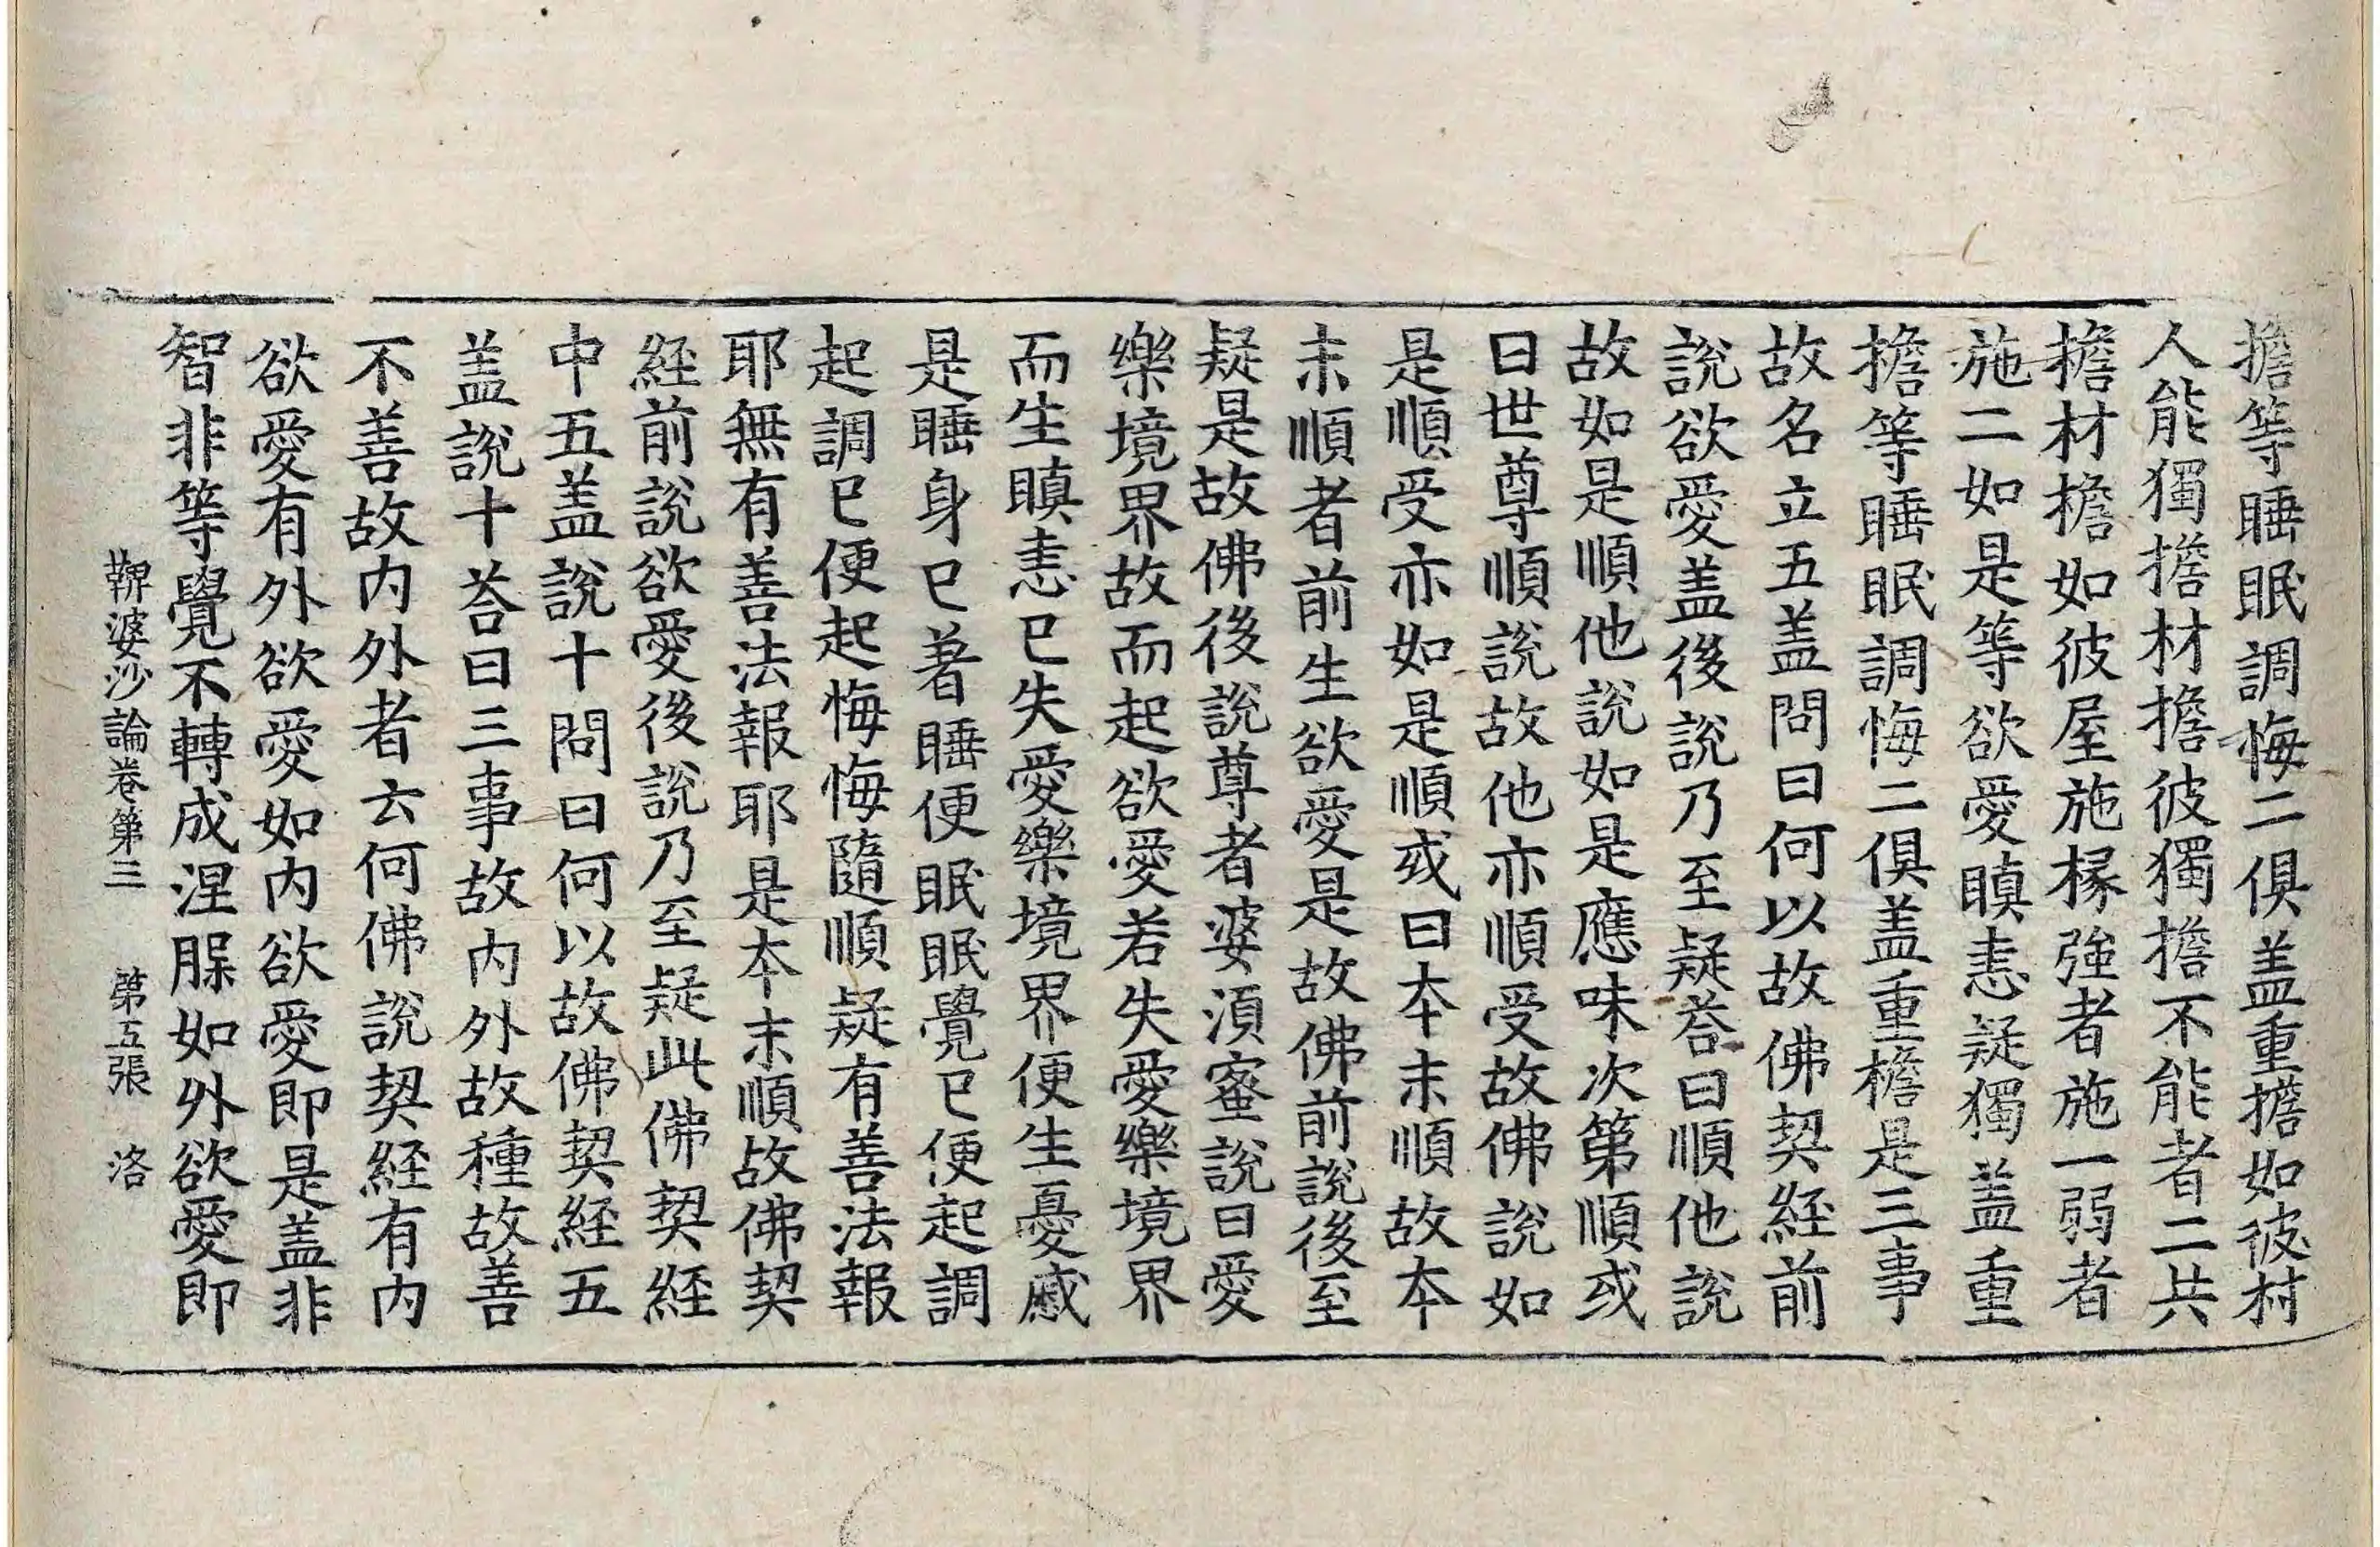 擔等睡眠調悔二俱盖重擔如彼村
人能獨擔材擔彼獨擔不能者二共
擔材檐如彼屋施椽強者施一弱者
施二如是等欲愛瞋恚疑獨盖重
擔等睡眠調悔二俱盖重檐是三事
故名立五盖問曰何以故佛契経前
說欲愛盖後說乃至疑荅曰順他說
故如是順他說如是應味次第順或
曰世尊順說故他亦順受故佛說如
是順受亦如是順或曰本末順故本
末順者前生欲愛是故佛前說後至
疑是故佛後說尊者婆湏蜜說曰愛
樂境界故而起欲愛若失愛樂境界
而生瞋恚已失愛樂境界便生憂慼
是睡身已著睡便眠眠覺已便起調
起調已便起悔悔隨順疑有善法報
耶無有善法報耶是本末順故佛契
経前說欲愛後說乃至疑此佛契経
中五盖說十問曰何以故佛契経五
盖說十荅曰三事故内外故種故善
不善故内外者云何佛說契経有内
欲愛有外欲愛如内欲愛即是盖非
智非等覺不轉成涅腂如外欲愛即
鞞婆沙論卷第三 第五張 洛